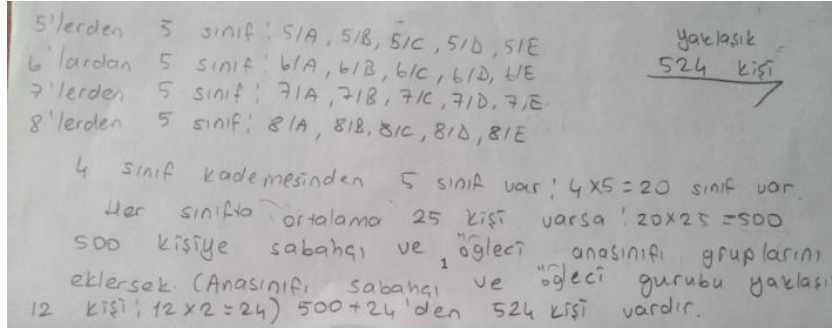 5'lerden 5 sınıf: 5/A, 5/B, 5/C, 5/D, 5/E
yaklaşık
6'lardan 5 sınıf: 6/A, 6/B, 6/C, 6/D, 6/E
524 kişi
7'lerden 5 sınıf: 7/A, 7/B, 7/C, 7/D, 7/E
8'lerden 5 sınıf: 8/A, 8/B, 8/C, 8/D, 8/E
4 sınıf kademesinden 5 sınıf var: 4x5=20 sınıf var.
Her sınıfta ortalama 25 kişi varsa: 20x25=500
500 kişiye sabahçı ve öğleci anasınıfı gruplarını
eklersek. (Anasınıfı sabahçı ve öğleci gurubu yaklaşı
12 kişi: 12x2=24) 500+24'den 524 kişi vardır.